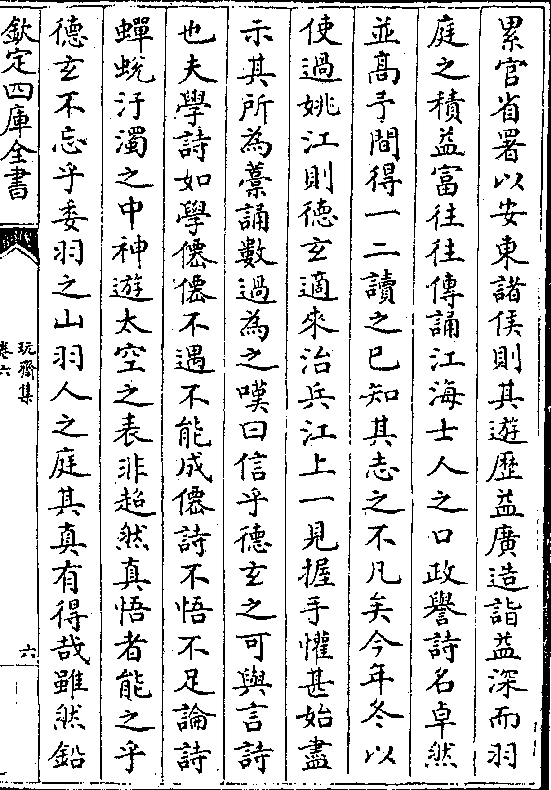 累官省署以安東諸侯則其遊歷益廣造詣益深而羽
庭之積益富往往傳誦江海士人之口政譽詩名卓然
並髙予間得一二讀之已知其志之不凡矣今年冬以
使過姚江則德玄適來治兵江上一見握手懽甚始盡
示其所為藁誦數過為之嘆曰信乎德玄之可與言詩
也夫學詩如學僊僊不遇不能成僊詩不悟不足論詩
蟬蛻汙濁之中神遊太空之表非超然真悟者能之乎
德玄不忘乎委羽之山羽人之庭其真有得哉雖然鉛
欽定四庫全書
玩齋集
卷六
六